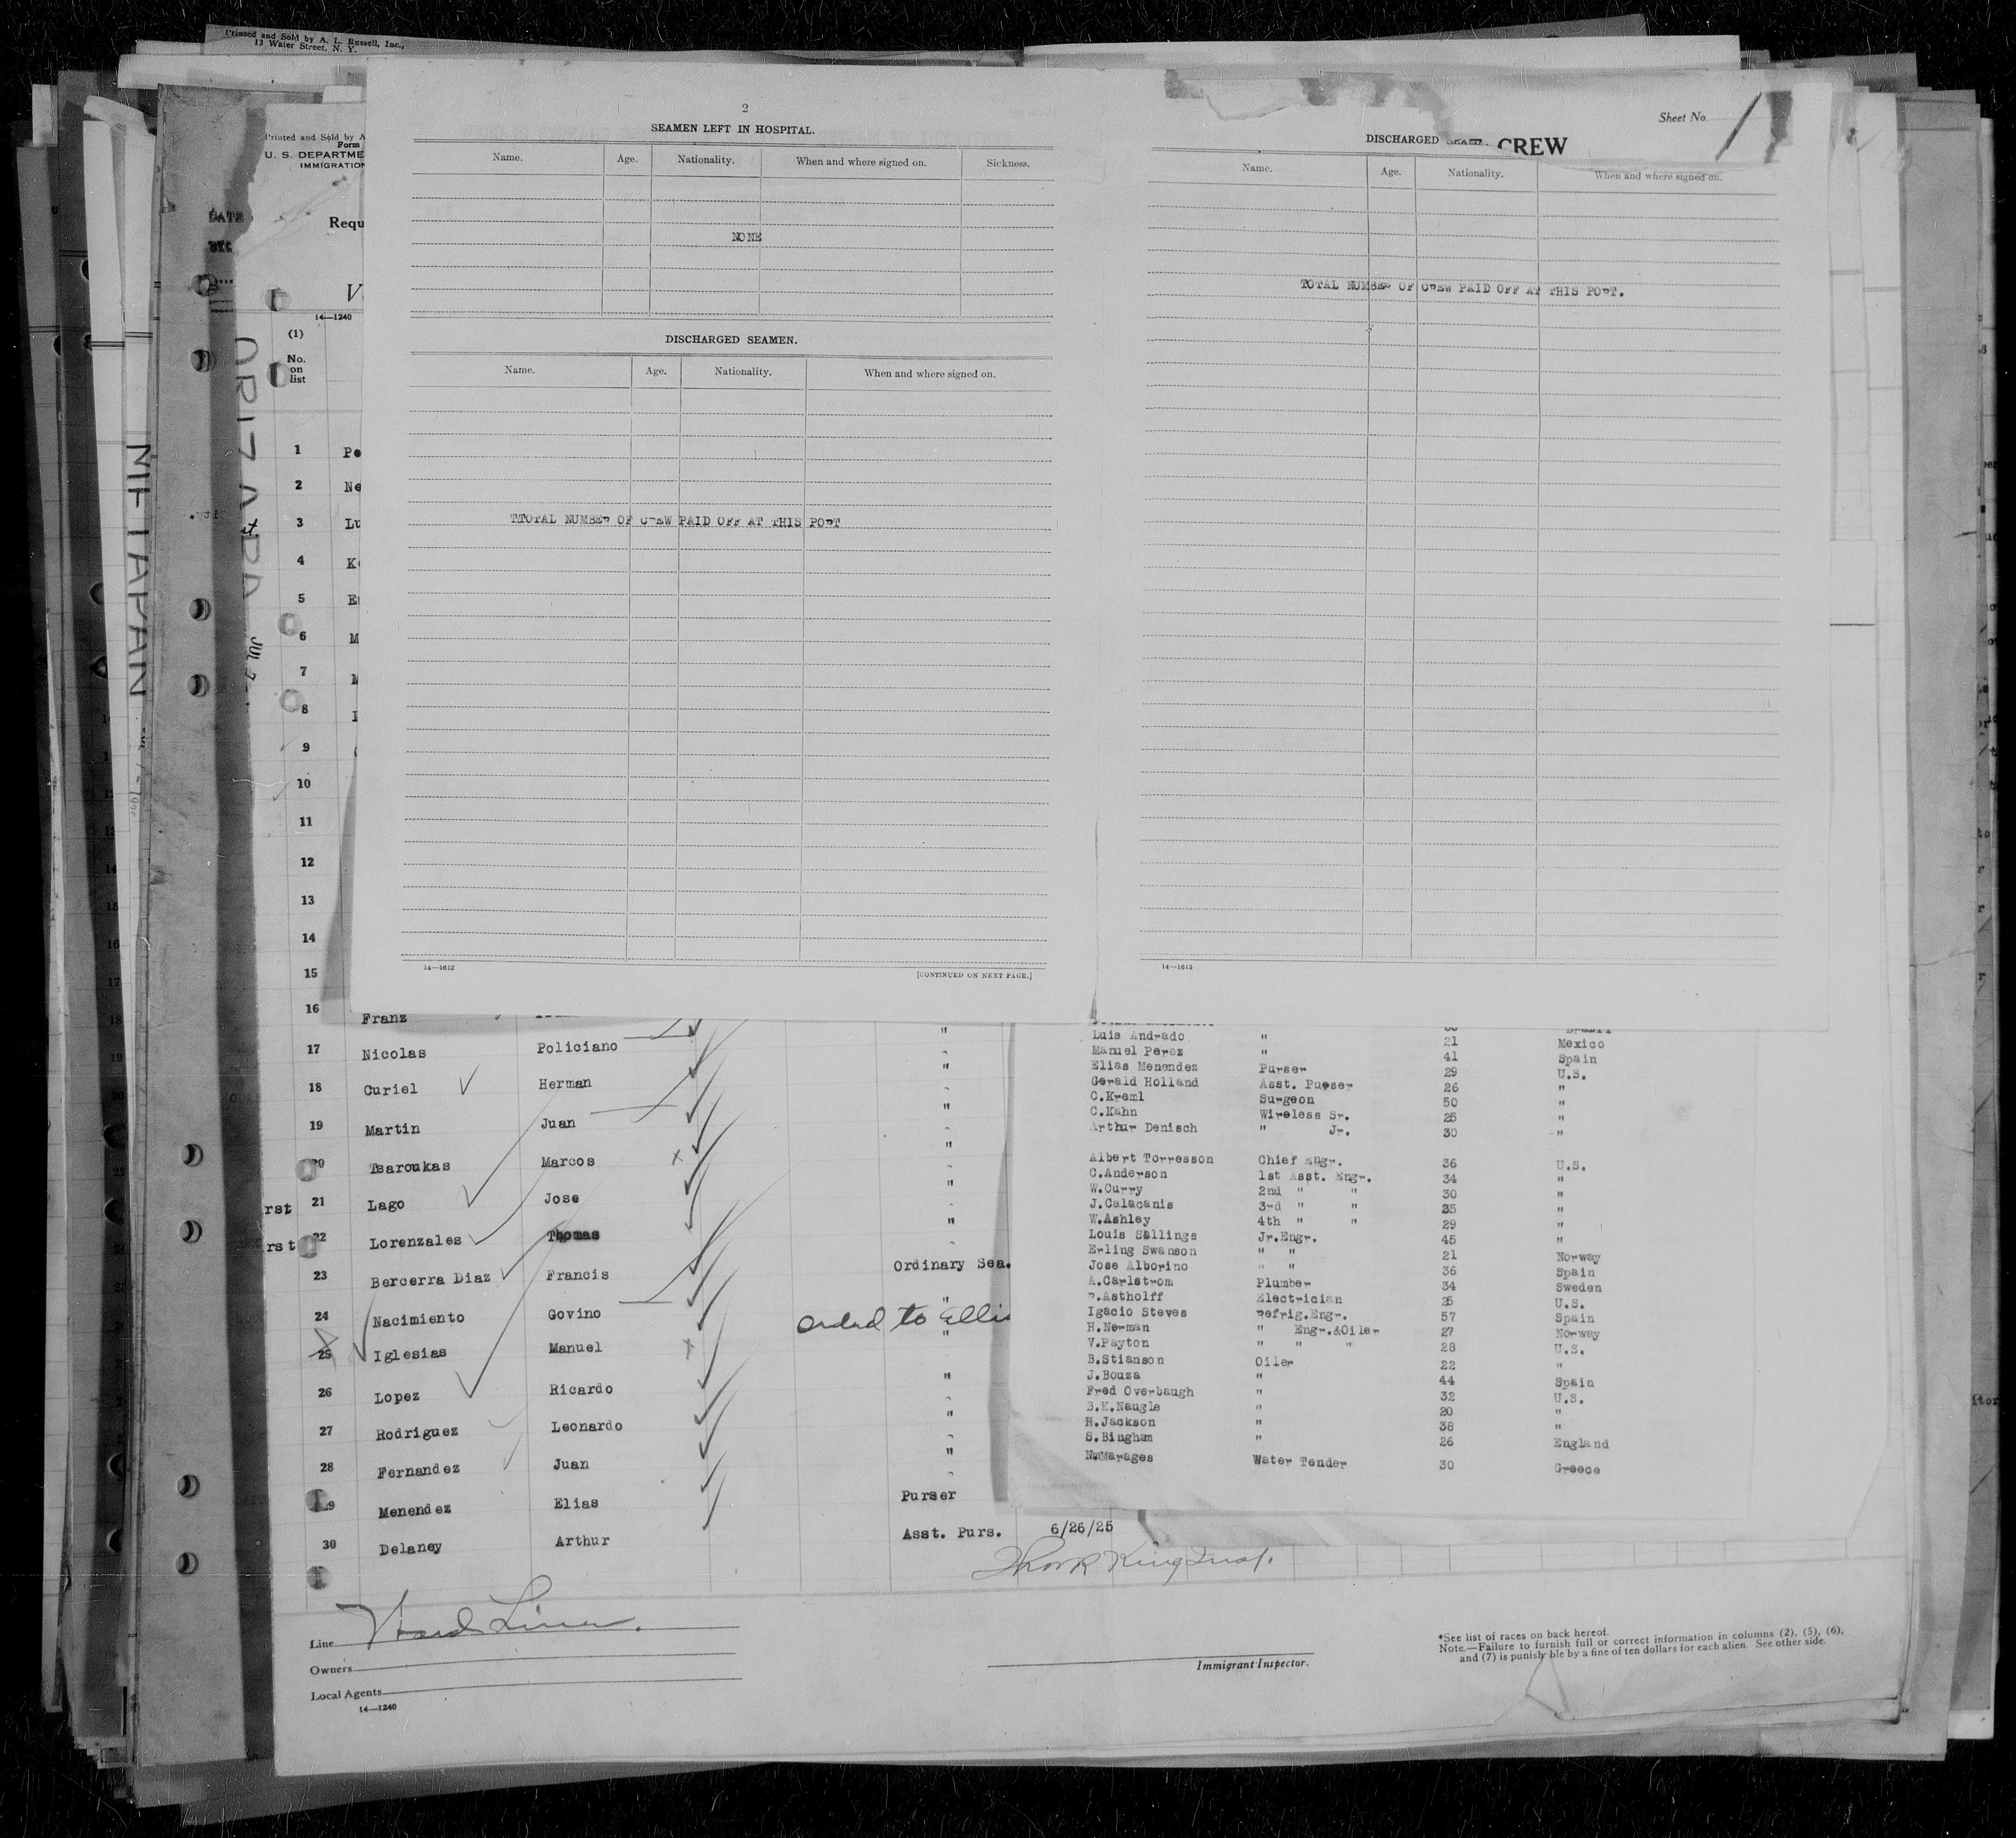 Printed and Sold by A. L. Russell, Inc.,
13 Water Street, N. Y.
Printed and Sold by A
Form
U. S. DEPARTME
IMMIGRATION
DATE
Requ
V
14—1240
(1)
No.
on
list
ORIZABA
JUL 2
2
SEAMEN LEFT IN HOSPITAL.
Name. Age. Nationality. When and where signed on. Sickness.
NONE
DISCHARGED SEAMEN.
Name. Age. Nationality. When and where signed on.
TTOTAL NUMBER OF CREW PAID OFF AT THIS PORT
14—1612
[CONTINUED ON NEXT PAGE.]
Sheet No. 1
DISCHARGED CREW
Name. Age. Nationality. When and where signed on.
TOTAL NUMBER OF CREW PAID OFF AT THIS PORT.
14—1612
1 Pe
2 Ne
3 Lu
4 K
5 E
6 M
7
8
9
10
11
12
13
14
15
16 Franz
17 Nicolas Policiano "
18 Curiel Herman "
19 Martin Juan "
20 Tsaroukas Marcos "
rst 21 Lago Jose "
rst 22 Lorenzales Thomas "
23 Bercerra Diaz Francis Ordinary Sea.
24 Nacimiento Govino "
to Ellis
25 Iglesias Manuel "
26 Lopez Ricardo "
27 Rodriguez Leonardo "
28 Fernandez Juan "
29 Menendez Elias Purser
30 Delaney Arthur Asst. Purs. 6/26/25
Brasil
Luis Andrado " 21 Mexico
Manuel Perez " 41 Spain
Elias Menendez Purser 29 U.S.
Gerald Holland Asst. Purser 26 "
C.Kreml Surgeon 50 "
C.Kahn Wireless Sr. 25 "
Arthur Denisch " Jr. 30 "
Albert Torresson Chief Engr. 36 U.S.
C.Anderson 1st Asst. Engr. 34 "
W.Curry 2nd " " 30 "
J.Calacanis 3rd " " 35 "
W.Ashley 4th " " 29 "
Louis Sallings Jr.Engr. 45 "
Erling Swanson " " 21 Norway
Jose Alborino " " 36 Spain
A.Carlstrom Plumber 34 Sweden
R.Astholff Electrician 25 U.S.
Igacio Steves Refrig.Engr. 57 Spain
H.Norman " Engr.&Oiler 27 Norway
V.Payton " " " 28 U.S.
B.Stianson Oiler 22 "
J.Bouza " 44 Spain
Fred Overbaugh " 32 U.S.
B.K.Naugle " 20 "
H.Jackson " 38 "
S.Bingham " 26 England
N.Marages Water Tender 30 Greece
Line Ward Line.
Owners
Local Agents
14—1240
Immigrant Inspector.
*See list of races on back hereof.
Note.—Failure to furnish full or correct information in columns (2), (5), (6),
and (7) is punishable by a fine of ten dollars for each alien. See other side.